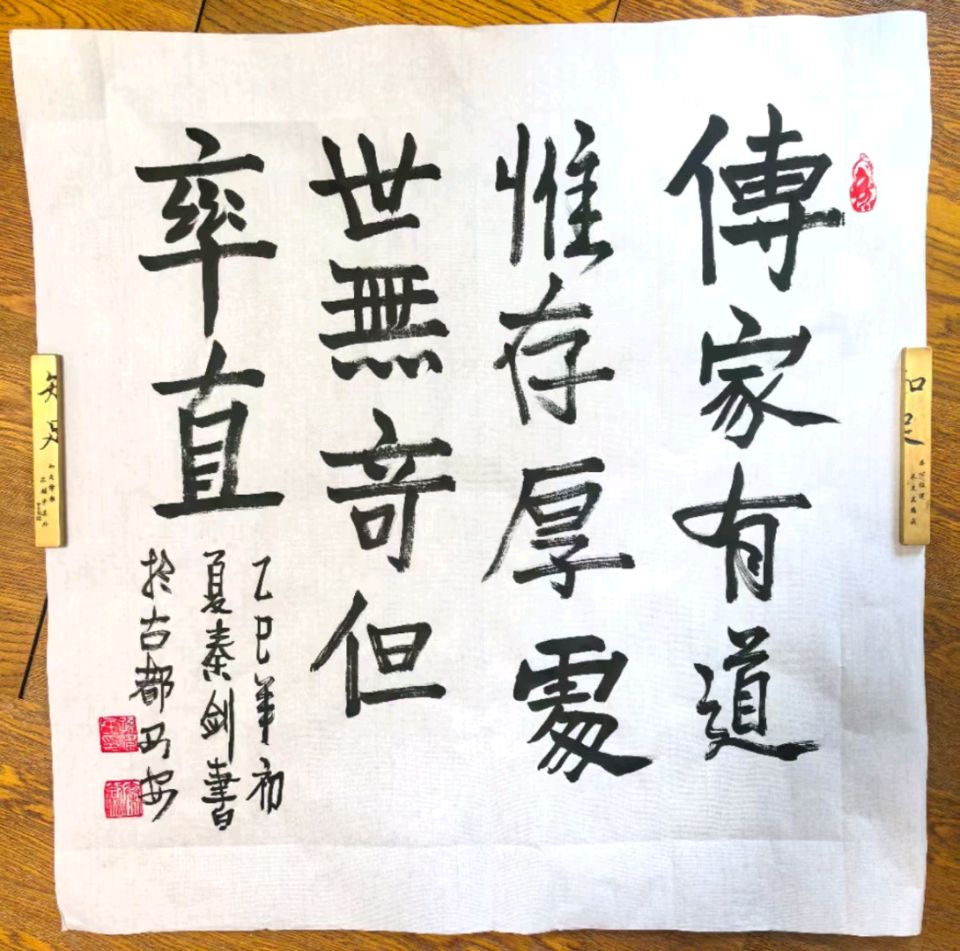 傳家有道
惟存厚處
世無奇但
率直
乙巳年初
夏秦剑書
於古都西安